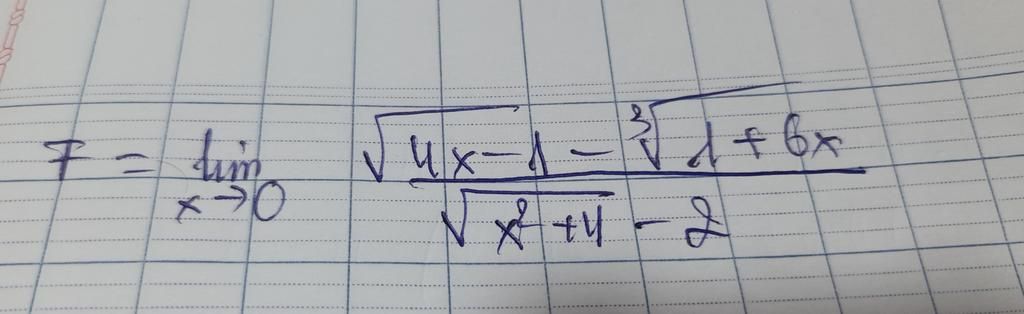 F = lim x→0 (√(4x-1) - ∛(1+6x)) / (√(x²+4) - 2)